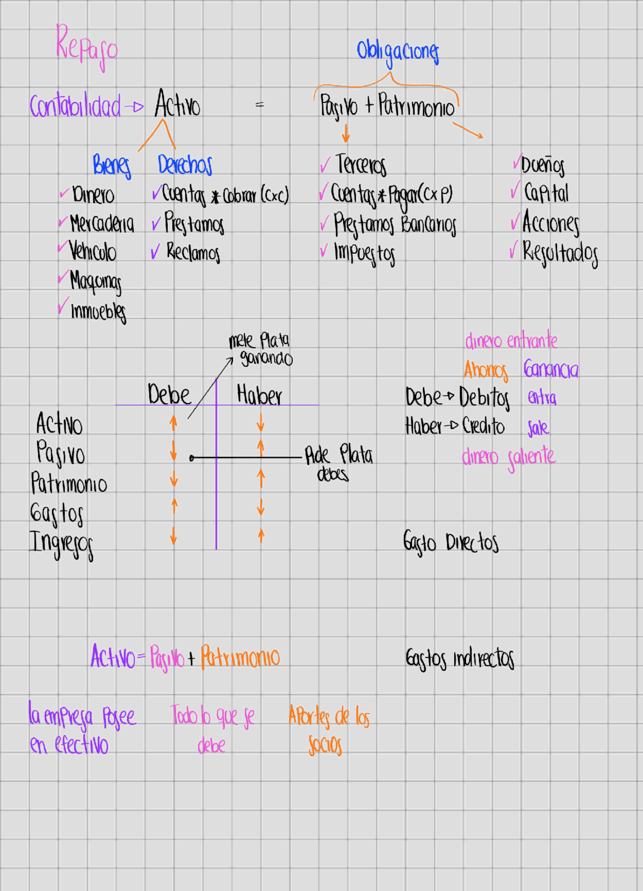 Repaso
Obligaciones
Contabilidad → Activo = Pasivo + Patrimonio
Bienes Derechos
✓ Dinero
✓ Mercaderia
✓ Vehiculo
✓ Maquinas
✓ Inmuebles
✓ Cuentas * Cobrar (CxC)
✓ Prestamos
✓ Reclamos
✓ Terceros
✓ Cuentas * Pagar (CxP)
✓ Prestamos Bancarios
✓ Impuestos
✓ Dueños
✓ Capital
✓ Acciones
✓ Resultados
mete Plata
ganando
Debe Haber
Activo ↑ ↓
Pasivo ↓ ↑
Patrimonio ↓ ↑
Gastos ↑ ↓
Ingresos ↓ ↑
Pide Plata
debes
dinero entrante
Ahorros Ganancia
Debe → Debitos entra
Haber → Credito sale
dinero saliente
Gasto Directos
Gastos indirectos
Activo = Pasivo + Patrimonio
la empresa posee
en efectivo
Todo lo que se
debe
Aportes de los
socios